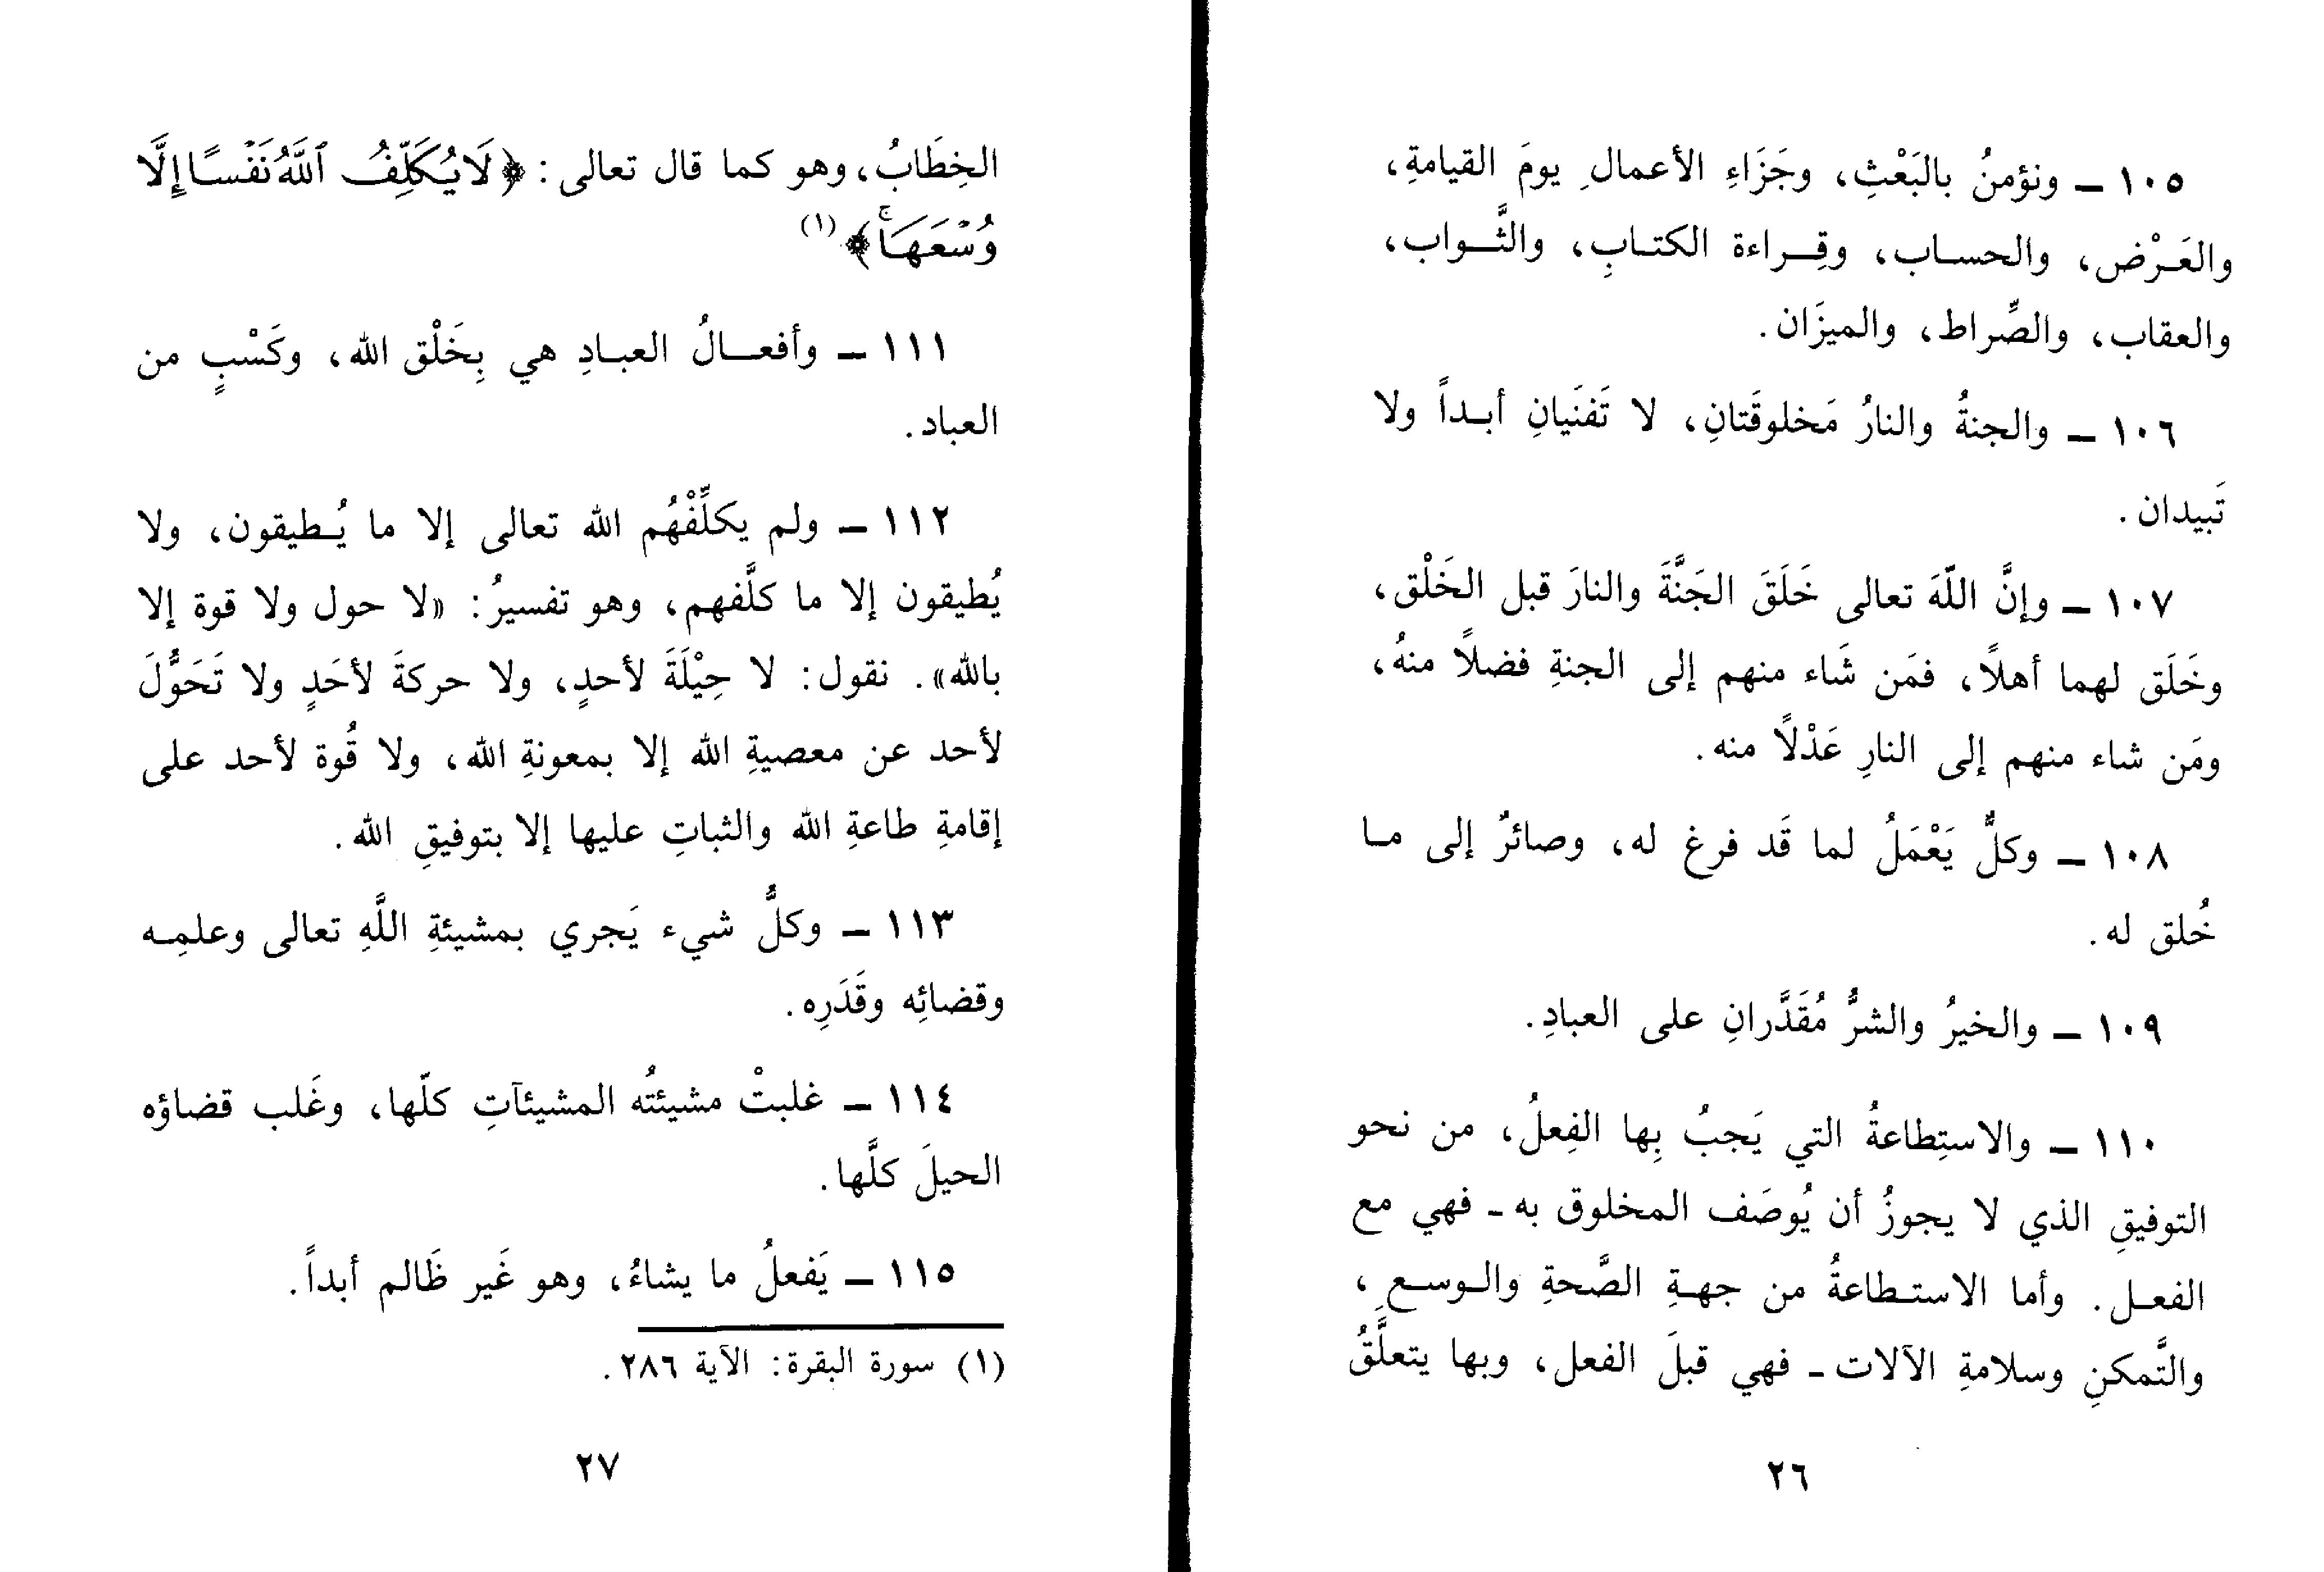 ١٠٥ ـ ونؤمنُ بالبَعْثِ، وجَزَاءِ الأعمالِ يومَ القيامةِ،
والعَـرْض، والحسـاب، وقِــراءة الكتـابِ، والثَّــواب،
والعقاب، والصِّراط، والميزَان.
١٠٦ ـ والجنةُ والنارُ مَخلوقَتانِ، لا تَفنَيانِ أبـداً ولا
تَبيدان.
١٠٧ ـ وإنَّ اللّهَ تعالى خَلَقَ الجَنَّةَ والنارَ قبل الخَلْق،
وخَلَق لهما أهلاً، فمَن شَاء منهم إلى الجنةِ فضلاً منهُ،
ومَن شاء منهم إلى النارِ عَدْلاً منه.
١٠٨ ـ وكلٌّ يَعْمَلُ لما قَد فرغ له، وصائرٌ إلى مـا
خُلق له.
١٠٩ ـ والخيرُ والشرُّ مُقَدَّرانِ على العبادِ.
١١٠ ـ والاستِطاعةُ التي يَجبُ بِها الفِعلُ، من نحو
التوفيقِ الذي لا يجوزُ أن يُوصَف المخلوق به ـ فهي مع
الفعـل. وأما الاستـطاعةُ من جهـةِ الصَّحةِ والـوسـعِ،
والتَّمكنِ وسلامةِ الآلات ـ فهي قبلَ الفعل، وبها يتعلَّقُ
٢٦
الخِطَابُ، وهو كما قال تعالى: ﴿لَا يُكَلِّفُ ٱللَّهُ نَفْسًا إِلَّا
وُسْعَهَاۚ﴾(١)
١١١ ـ وأفعــالُ العبـادِ هي بِخَلْق الله، وكَسْبٍ من
العباد.
١١٢ ـ ولم يكلِّفْهُم الله تعالى إلا ما يُـطيقون، ولا
يُطيقون إلا ما كلَّفهم، وهو تفسيرُ: «لا حول ولا قوة إلا
بالله». نقول: لا حِيْلَةَ لأحدٍ، ولا حركةَ لأحَدٍ ولا تَحَوُّلَ
لأحد عن معصيةِ الله إلا بمعونةِ الله، ولا قُوة لأحد على
إقامةِ طاعةِ الله والثباتِ عليها إلا بتوفيقِ الله.
١١٣ ـ وكلُّ شيء يَجري بمشيئةِ اللَّهِ تعالى وعلمِـه
وقضائِه وقَدَرِه.
١١٤ ـ غلبتْ مشيئتُه المشيئآتِ كلّها، وغَلب قضاؤه
الحيلَ كلَّها.
١١٥ ـ يَفعلُ ما يشاءُ، وهو غَير ظَالم أبداً.
(١) سورة البقرة: الآية ٢٨٦.
٢٧